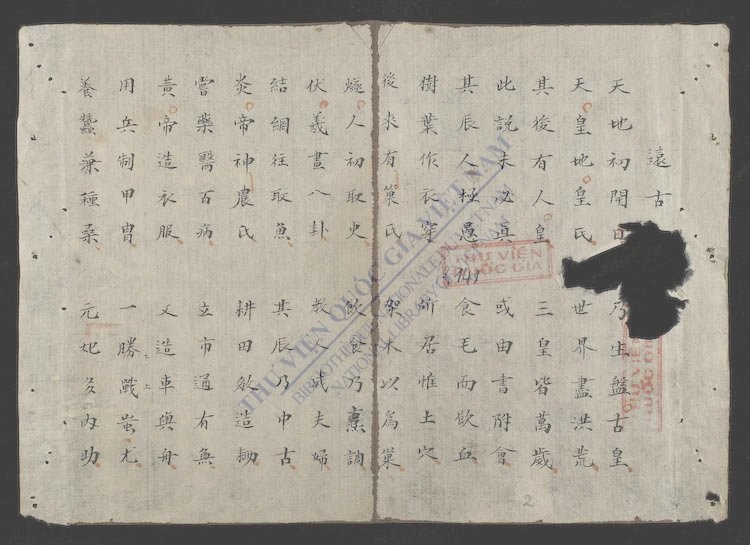 遠古
天地初開日 乃生盤古皇
天皇地皇氏 世界盡洪荒
其後有人皇 三皇皆萬歲
此説未必真 或由書附會
其辰人極愚 食毛而飲血
樹葉作衣穿 所居惟土穴
後來有巢氏 架木以為巢
燧人初取火 飲食乃烹調
伏羲畫八卦 教人成夫婦
結網往取魚 其辰乃中古
炎帝神農氏 耕田教造耡
嘗藥醫百病 立市通有無
黃帝造衣服 又造車與舟
用兵制甲冑 一勝戰蚩尤
養蠶兼種桑 元妃多內助
THƯ VIỆN
QUỐC GIA
THƯ VIỆN QUỐC GIA VIỆT NAM
BIBLIOTHÈQUE NATIONALE DU VIETNAM
NATIONAL LIBRARY OF VIETNAM
THƯ VIỆN
QUỐC GIA
2